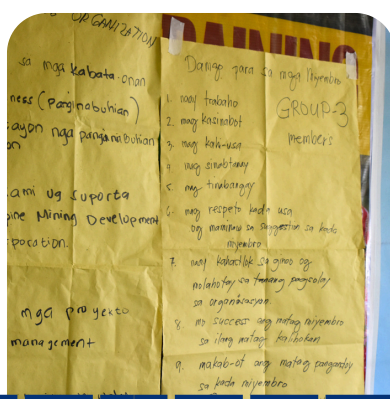 ORGANIZATION
sa mga kabata-onan
ness (panginabuhian)
ayon nga panginabuhian
on
ami ug suporta
pine Mining Development
poration.
mga proyekto
management
TRAINING
Damgo para sa mga Miyembro
GROUP-3
members
1. naay trabaho
2. mag kasinabot
3. mag kahi-usa
4. mag sinabtanay
5. mag tinabangay
6. mag respeto kada usa
ug maminaw sa suggestion sa kada
miyembro
7. naay kahadlok sa ginoo og
molahutay sa tanang pagsulay
sa organisasyon.
8. mo success ang matag miyembro
sa ilang matag kalihokan
9. makab-ot ang matag pangandoy
sa kada miyembro